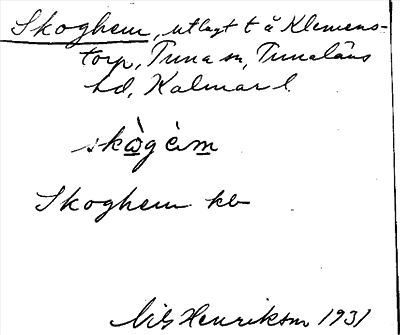 Skoghem, utlagt t å Klemens-
torp, Tuna sn, Tunaläns
hd, Kalmar l.
skògèm
Skoghem kb
Nils Henriksson 1931